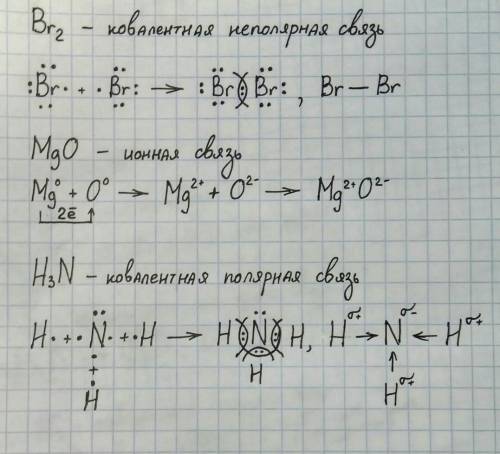 Br₂ – ковалентная неполярная связь
:Br· + ·Br: → :Br(:)Br:, Br — Br
MgO – ионная связь
Mg⁰ + O⁰ → Mg²⁺ + O²⁻ → Mg²⁺O²⁻
2ē
H₃N – ковалентная полярная связь
H· + ·N· + ·H → H(:N:)H, H^σ+ → N^σ- ← H^σ+
+ ↑
·
H H H^σ+